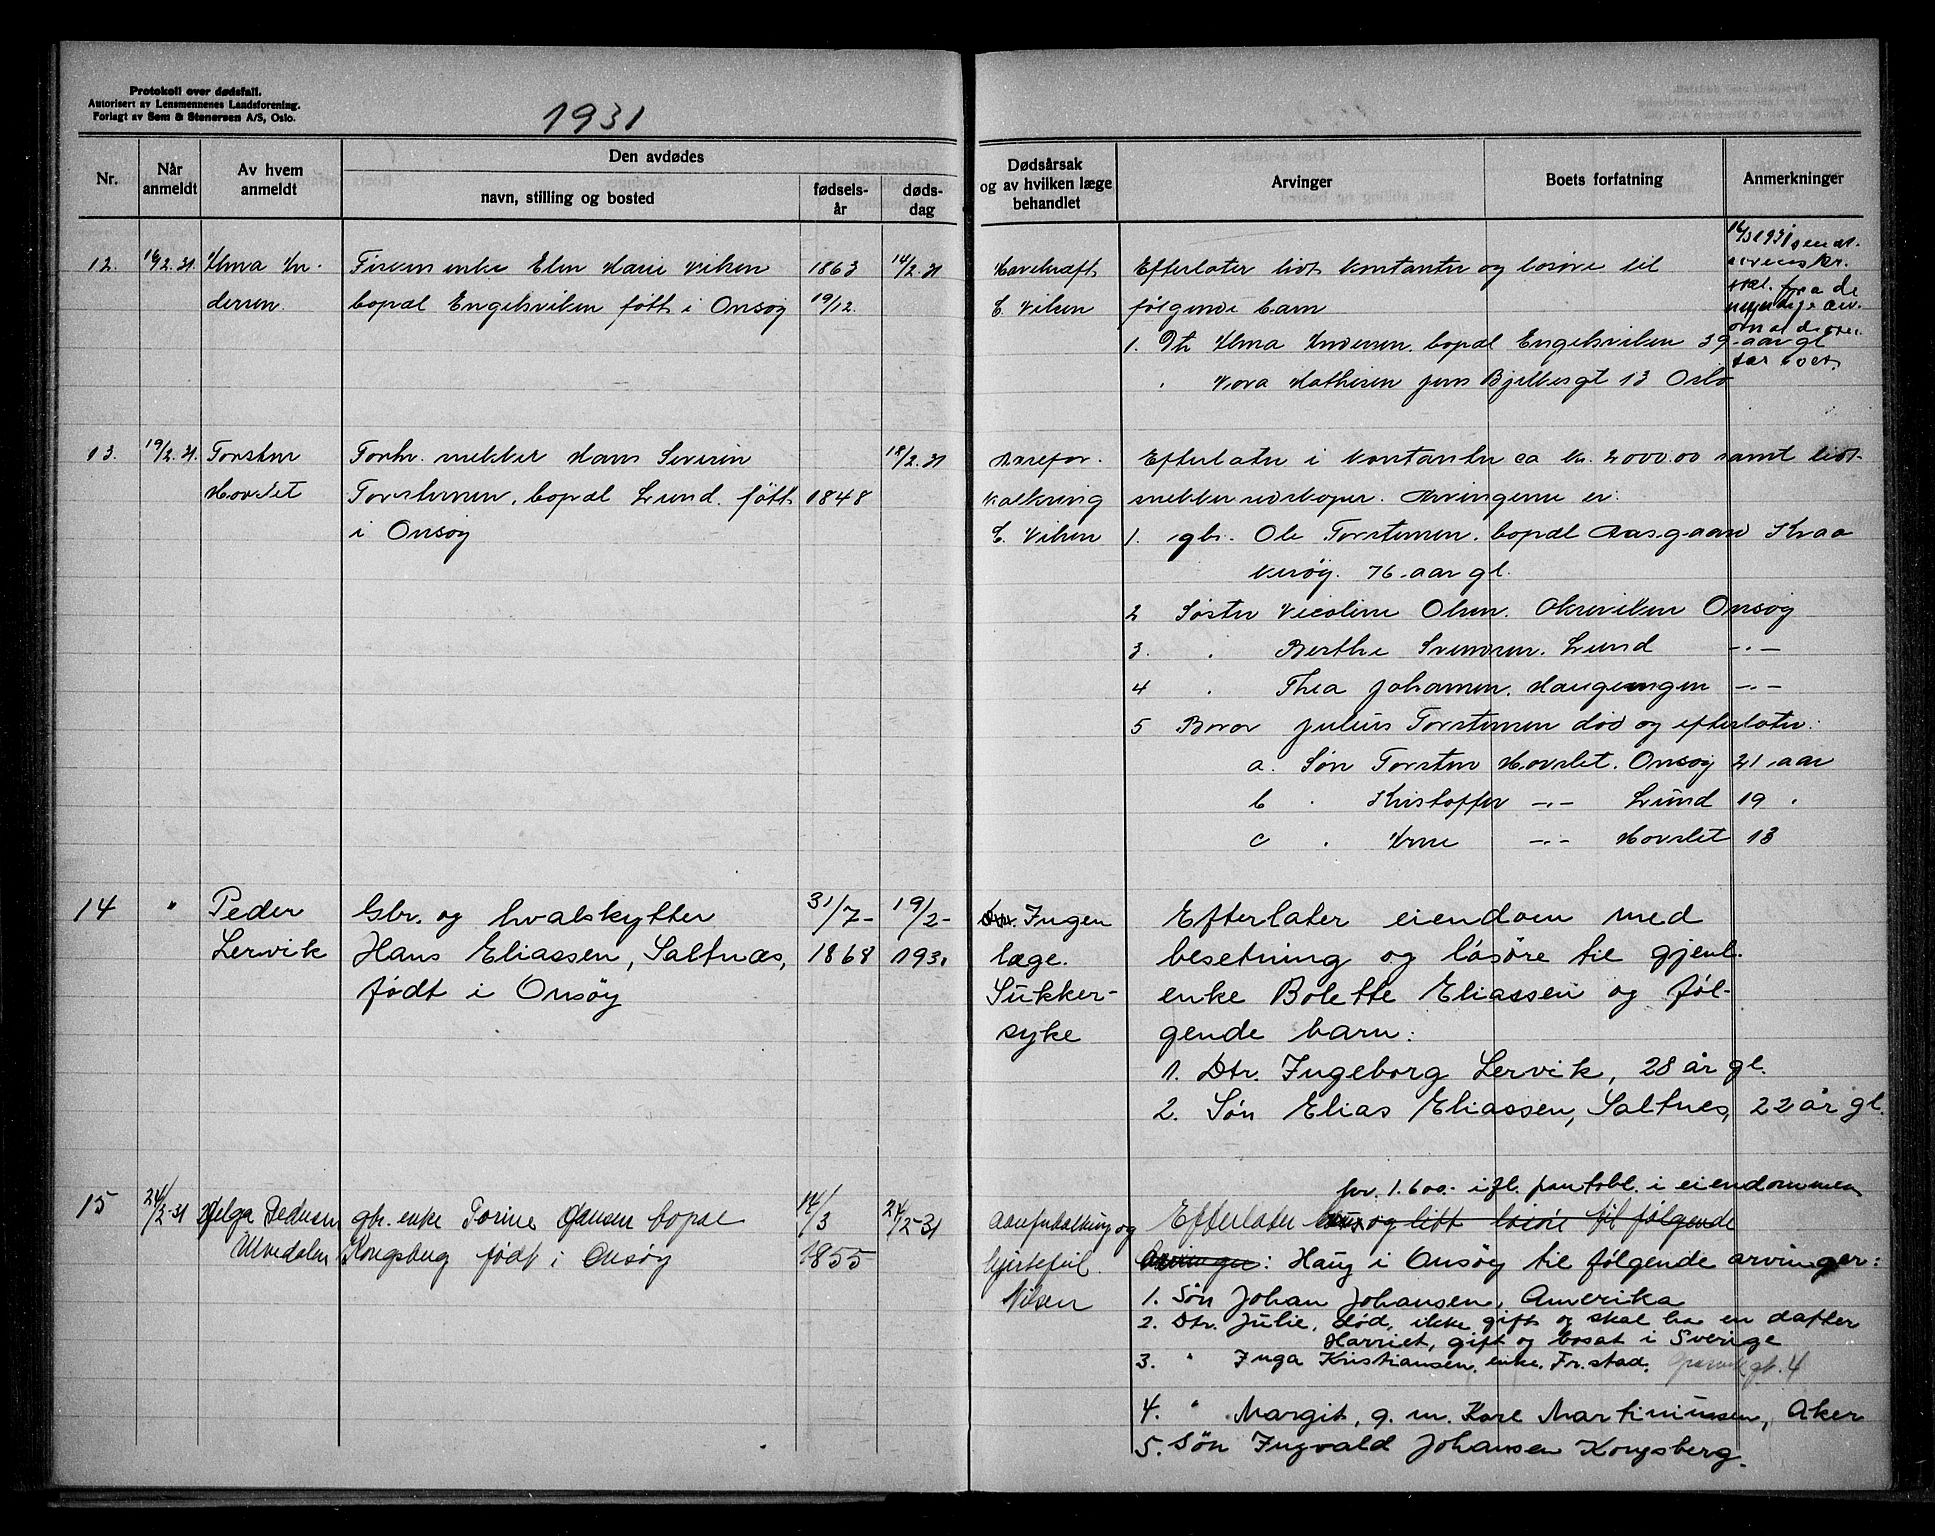 Protokoll over dødsfall.
Autorisert av Lensmennenes Landsforening.
Forlagt av Sem & Stenersen A/S, Oslo.
1931
Nr.
Når anmeldt
Av hvem anmeldt
Den avdødes
navn, stilling og bosted
fødsels-år
døds-dag
Dødsårsak og av hvilken læge behandlet
Arvinger
Boets forfatning
Anmerkninger
12. 16/2.31 Alma An- Elen Marie Viken 1863 14/2.31
dersen. bopæl Engelsviken født i Onsøy 19/12.
Mavekræft
E. Nilsen
Efterlater lidt kontanter og løsøre til
følgende barn
1. Dtr Alma Andersen. bopæl Engelsviken 39 aar gl
Mathisen Jens Bjelkesgt 13 Oslo
16/3 1931 sendt
fra de
myndige arv.
om at de over-
tar boet.
13. 19/2.31. Torsten Hans Severin 18/2.31
Hovslet Torstensen, bopæl Lund. født 1848
i Onsøy
Aarefor-
kalkning
E. Nilsen
Efterlater i kontanter ca kr. 2000.00 samt lidt
redskaper. Arvingerne er:
1. gbr. Ole Torstensen. bopæl Aasgaard Kraa
kerøy. 76 aar gl.
2 Søster Nicoline Olsen. Onsøy
3. " Berthe Svendsen. Lund -"-
4 " Thea Johansen. Haugeengen -"-
5 Broror Julius Torstensen død og efterlater:
a. Søn Torsten Hovslet. Onsøy 21 aar
b " Kristoffer -"- Lund 19 "
c " Arne -"- Hovslet 13
14 " Peder Gbr. og hvalskytter 31/7- 19/2-
Lervik Hans Eliassen, Saltnæs, 1868 1931
født i Onsøy
Ingen
læge.
Sukker-
syke
Efterlater eiendom med
besetning og løsøre til gjenl.
enke Bolette Eliassen og føl-
gende barn:
1. Dtr. Ingeborg Lervik, 28 år gl.
2. Søn Elias Eliassen, Saltnes, 22 år gl.
15 24/2-31 Helga Pedersen gbr. enke Torine Hansen bopæl 14/3 24/2-31
Ulvedalen Kongsberg født i Onsøy 1855
Aareforkalkning og
hjertefeil.
Nilsen
kr. 1.600.- ifl. pantobl. i eiendommen
Efterlater hus og litt løsøre til følgende
Arvinger: Haug i Onsøy til følgende arvinger:
1. Søn Johan Johansen, Amerika
2. Dtr. Julie, død, ikke gift og skal ha en datter
Harriet, gift og bosat i Sverige
3. " Inga Kristiansen, enke, Fr.stad. gt. 4
4. " Margit, g. m. Karl Martinussen, Aker
5. Søn Ingvald Johansen Kongsberg.